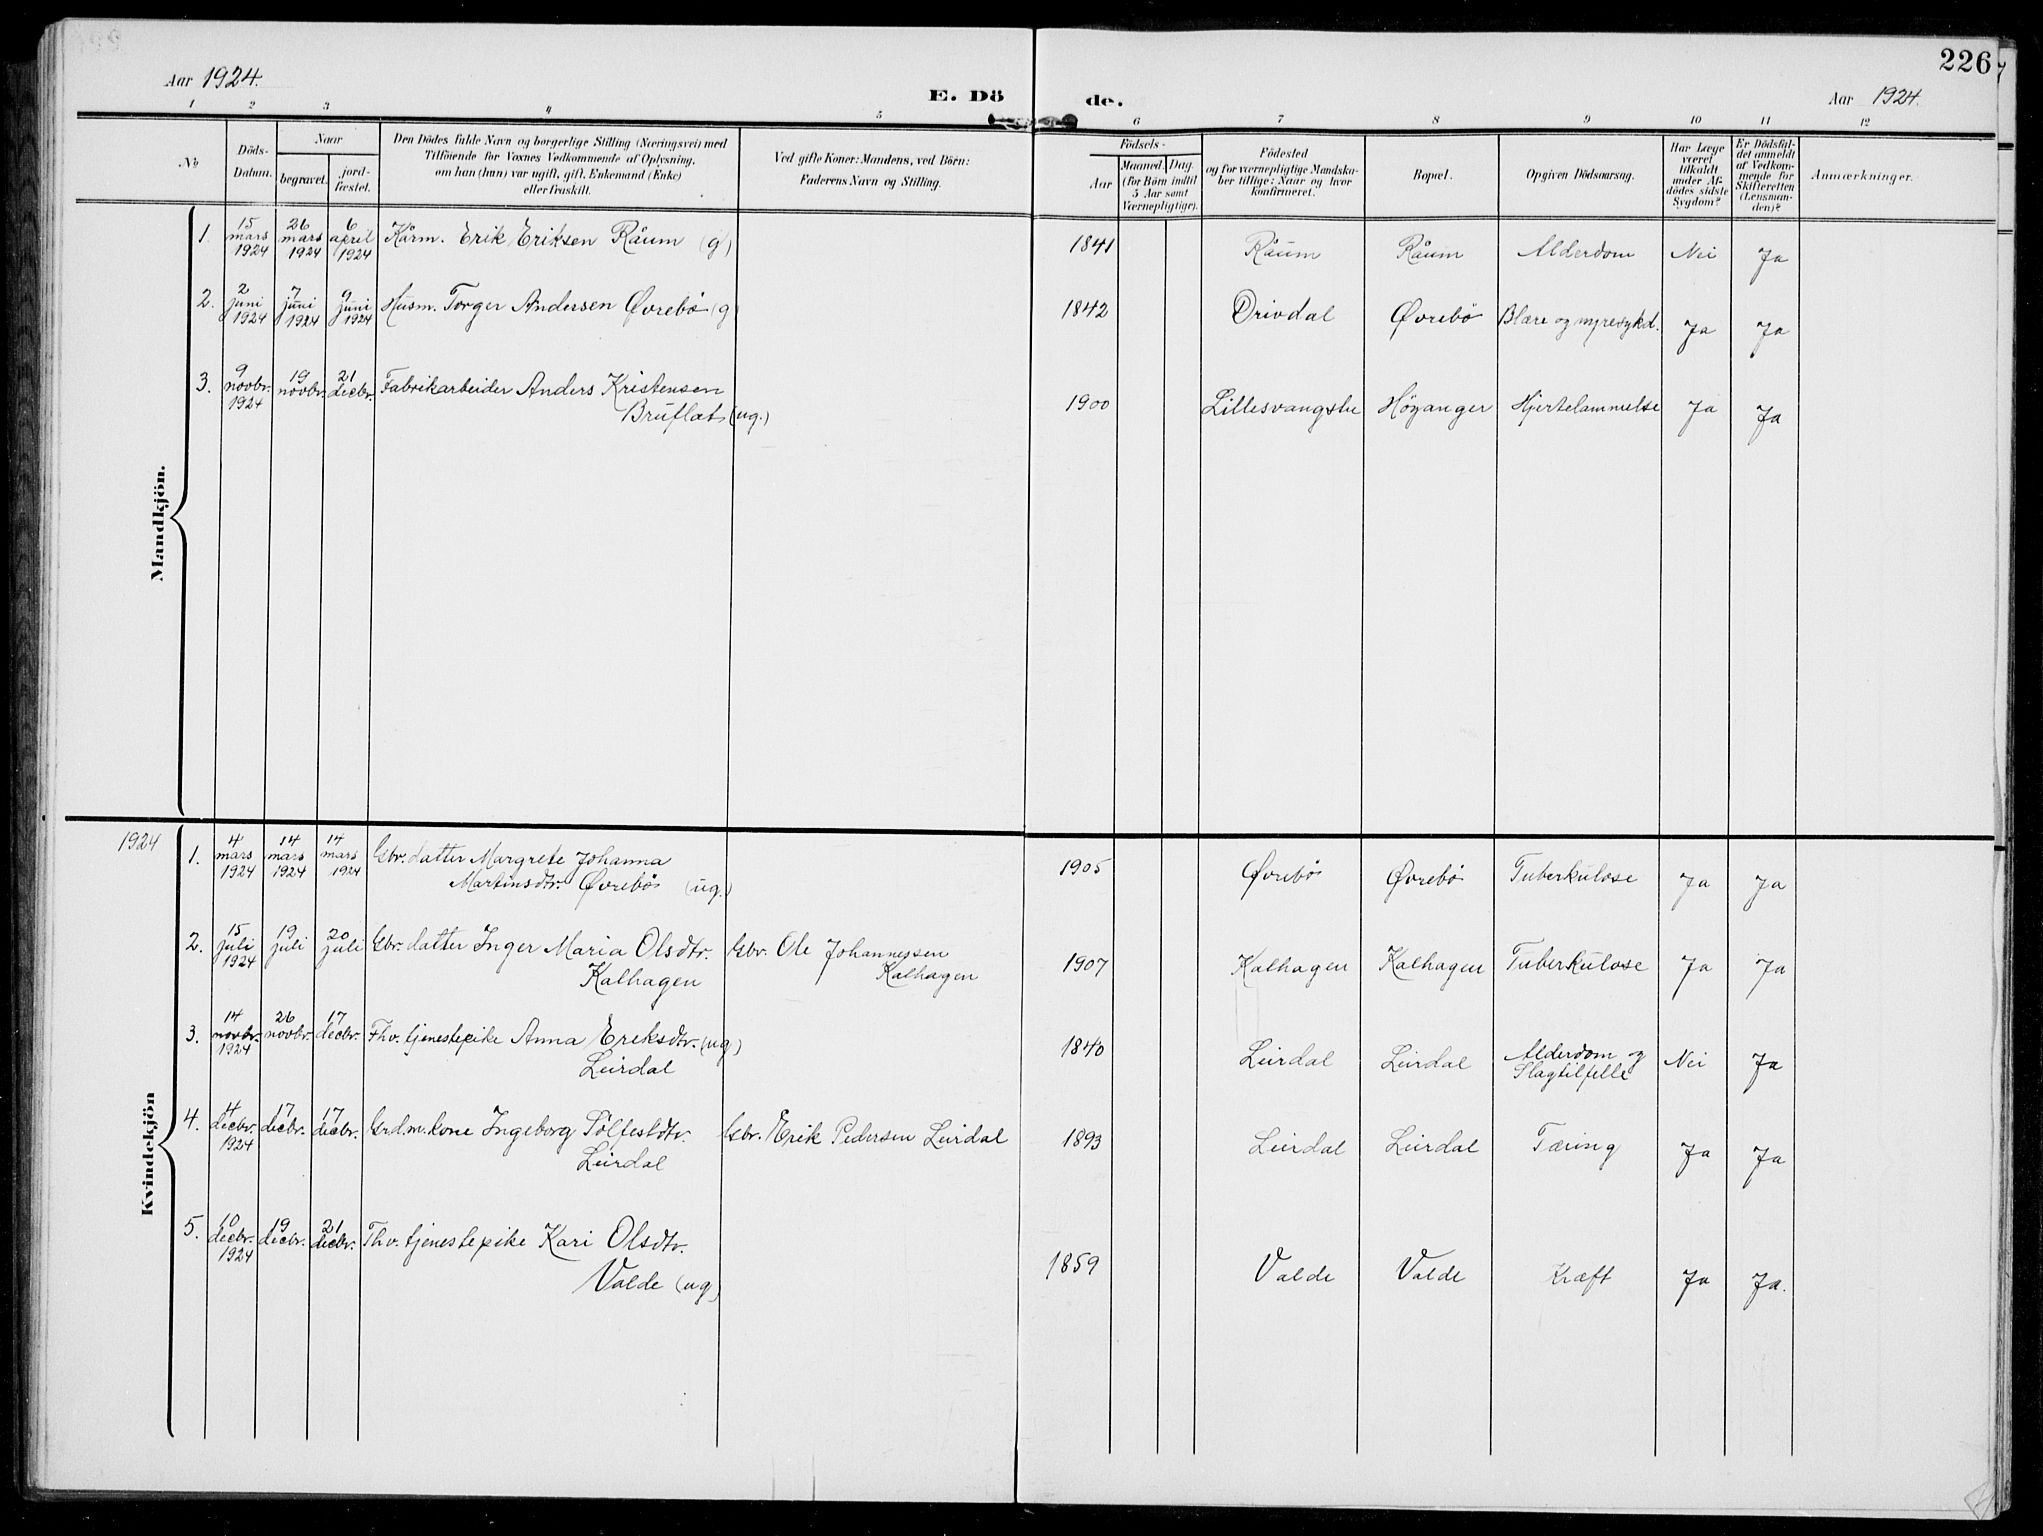 226
Aar 1924.
E. Dö de.
Aar 1924.
1 2 3 4 5 6 7 8 9 10 11 12
No
Döds-
Datum.
Naar
begravet.
jord-
fæstet.
Den Dödes fulde Navn og borgerlige Stilling (Næringsvei) med
Tilföiende for Voxnes Vedkommende af Oplysning,
om han (hun) var ugift, gift, Enkemand (Enke)
eller fraskilt.
Ved gifte Koner: Mandens, ved Börn:
Faderens Navn og Stilling.
Födsels-
Aar
Maaned. Dag.
(for Börn indtil
5 Aar samt
Værnepligtige).
Födested
og for værnepligtige Mandska-
ber tillige: Naar og hvor
konfirmeret.
Bopæl.
Opgiven Dödsaarsag.
Har Læge
været
tilkaldt
under Af-
dödes sidste
Sygdom?
Er Dödsfal-
det anmeldt
af Vedkom-
mende for
Skifteretten
(Lensman-
den)?
Anmærkninger.
Mandkjön.
1. 15 mars 1924 26 mars 1924 6 april 1924 Kårm. Erik Eriksen Råum (g) 1841 Råum Råum Alderdom Nei Ja
2. 2 juni 1924 7 juni 1924 9 juni 1924 Husm. Torger Andersen Øvrebö (g) 1842 Drivdal Øvrebö Blære og nyresykd. Ja Ja
3. 9 novbr. 1924 19 novbr. 21 decbr. Fabrikarbeider Anders Kristensen
Bruflat (ug.) 1900 Lillesvangstu Höyanger Hjertelammelse Ja Ja
Kvindekjön
1924
1. 4 mars 1924 14 mars 1924 14 mars 1924 Gbr. datter Margrete Johanna
Martinsdtr. Øvrebö (ug.) 1905 Øvrebö Øvrebö Tuberkulose Ja Ja
2. 15 juli 1924 19 juli 20 juli Gbr. datter Inger Maria Olsdtr. Gbr. Ole Johannessen
Kalhagen Kalhagen 1907 Kalhagen Kalhagen Tuberkulose Ja Ja
3. 14 novbr. 1924 26 novbr. 17 decbr. Fhv. tjenestepike Anna Eriksdtr. (ug)
Leirdal 1840 Leirdal Leirdal Alderdom og
Slagtilfelle Nei Ja
4. 4 decbr. 1924 17 decbr. 17 decbr. Grdm. kone Ingeborg Sölfestdtr. Gbr. Erik Pedersen Leirdal
Leirdal 1893 Leirdal Leirdal Tæring Ja Ja
5. 10 decbr. 1924 19 decbr. 21 decbr. Fhv. tjenestepike Kari Olsdtr.
Valde (ug) 1859 Valde Valde Kræft Ja Ja.